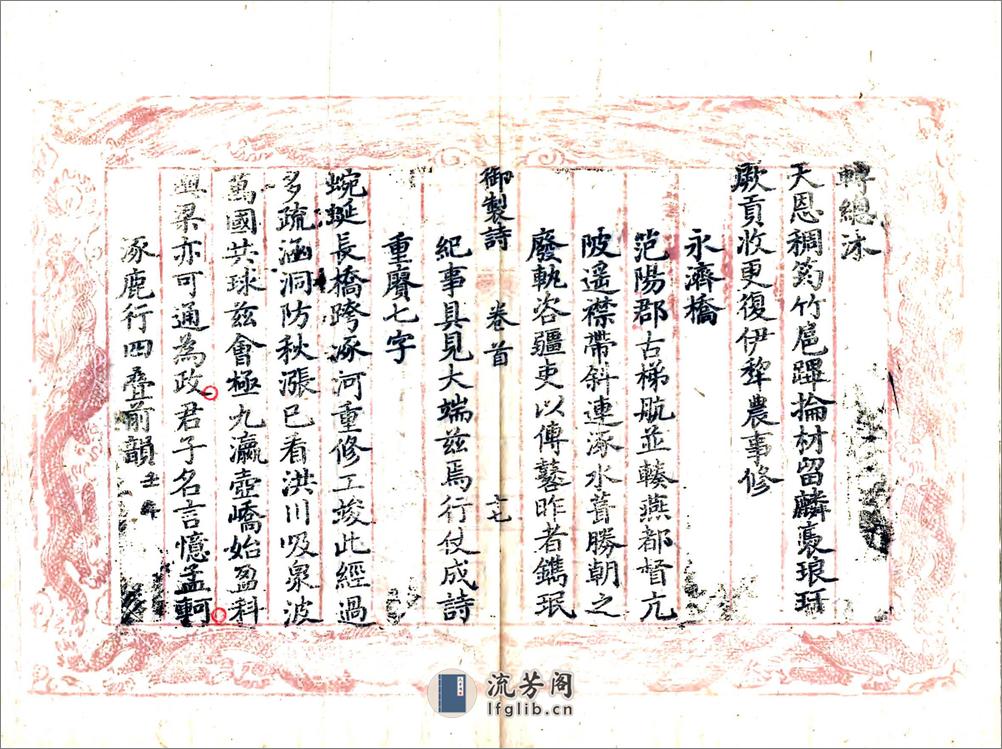 轉總沐
天恩稠筠竹扈蹕掄材留麟裘琅玕
厥貢收更復伊犂農事修
永濟橋
范陽郡古梯航並輳燕都督亢
陂遥襟帶斜連涿水葺勝朝之
廢軌咨疆吏以傳鼛昨者鐫珉
御製詩 卷首 六七
紀事具見大端茲焉行仗成詩
重賡七字
蜿蜒長橋跨涿河重修工竣此經過
多疏涵洞防秋漲已看洪川吸泉波
萬國共球兹會極九瀛壺嶠始盈科
輿梁亦可通為政君子名言憶孟軻
涿鹿行四叠前韻
流芳阁
lfglib.cn